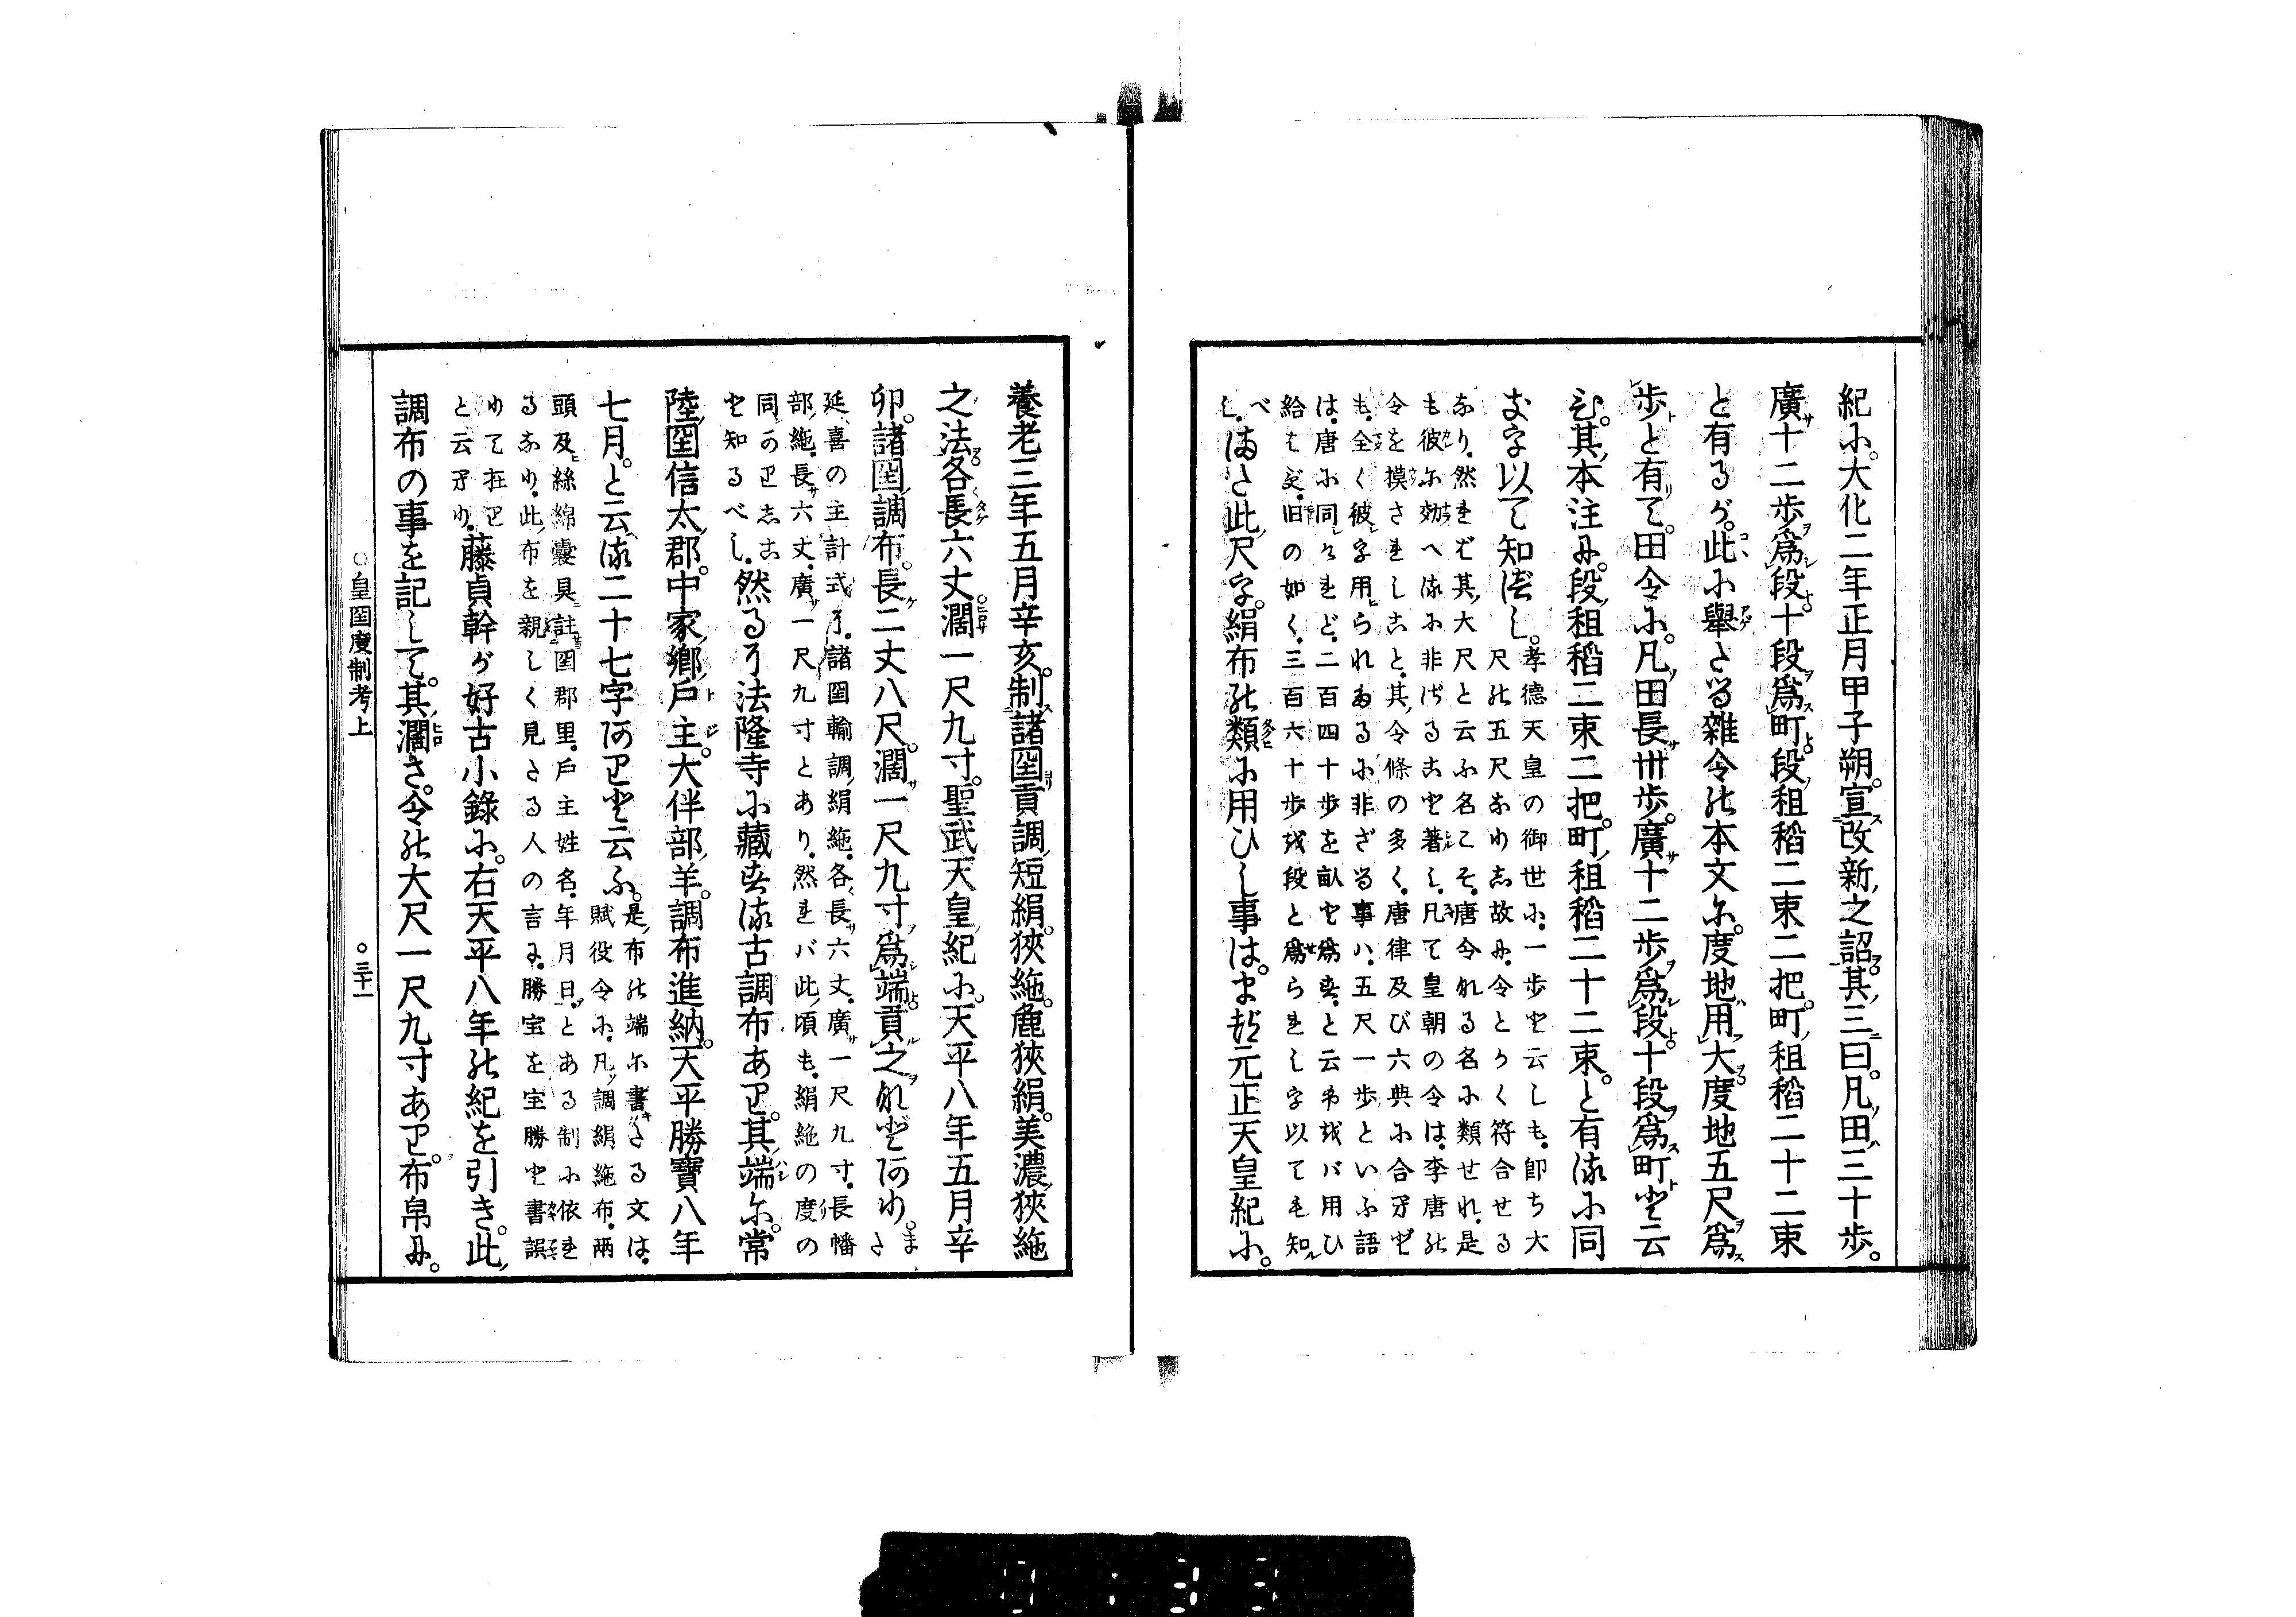 紀に。大化二年正月甲子朔。宣改新之詔其三曰。凡田三十歩。
廣十二歩爲段十段爲町段租稻二束二把。町租稻二十二束
と有るが。此に舉たる雜令の本文に。度地用大度地五尺爲
歩と有て。田令に。凡田長卅歩。廣十二歩爲段十段爲町と云
ひ。其本注に。段租稻二束二把。町租稻二十二束。と有るに同
お字以て知べし。
孝德天皇の御世に。一歩と云しも。即ち大
尺の五尺なりし故に。令とよく符合せる
なり。然れど其大尺と云ふ名こそ。唐令なる名に類せれ。是
も彼に効へるに非ざること著し。凡て皇朝の令は。李唐の
令を摸されしこと。其令條の多く。唐律及び六典に合へど
も。全く彼字用られたるに非ざる事ハ。五尺一歩といふ語
は。唐に同じけれど。二百四十歩を畝と爲す。と云るをバ用ひ
給はず。旧の如く。三百六十歩を段と爲られし字以ても知
べし。
またさ此尺字。絹布の類に用ひし事は。まづ元正天皇紀に。
養老三年五月辛亥。制諸国貢調短絹。狹絁。麁狹絹。美濃狹絁
之法各長六丈。濶一尺九寸。聖武天皇紀に。天平八年五月辛
卯。諸国調布。長二丈八尺。濶一尺九寸爲端貢之などあり。また
延喜の主計式に。諸国輸調絹絁。各長六丈。廣一尺九寸。長幡
部絁。長六丈。廣一尺九寸とあり。然れバ此頃も。絹絁の度の
同かりしこ
と知るべし。
然るに法隆寺に藏する古調布あり。其端に。常
陸国信太郡。中家鄕戸主。大伴部羊。調布進納。天平勝寶八年
七月。と云る二十七字ありと云ふ。
是布の端に書たる文は。
賦役令に。凡調絹絁布。兩
頭及絲綿嚢具註国郡里。戸主姓名。年月日。とある制に依れ
るなり。此布を親しく見たる人の言に。勝宝を宝勝と書誤
りて在り
と云へり。
藤貞幹が好古小錄に。右天平八年の紀を引き。此
調布の事を記して。其濶さ。令の大尺一尺九寸あり。布帛に。
○皇国度制考上
○三十一